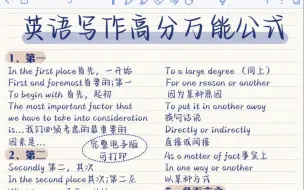 英语写作高分万能公式
1、第一
In the first place首先,一开始
First and foremost首要的;第一
To begin with首先,起初
The most important factor that
we have to take into consideration
is...我们必须考虑的最重要的
因素是...
2、第二
Secondly 第二,其次
In the second place其次;第二点
To a large degree (同上)
For one reason or another
因为某种原因
To put it in another away
换句话说
Directly or indirectly
直接或间接
As a matter of fact事实上
In one way or another
以某种方式
完整电子版
可打印